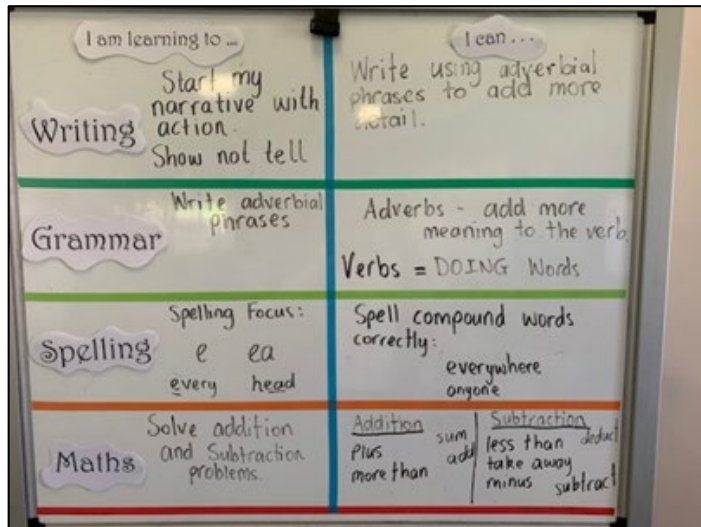 I am learning to ...
I can ...
Writing
Start my
narrative with
action.
Show not tell
Write using adverbial
phrases to add more
detail.
Grammar
Write adverbial
phrases
Adverbs - add more
meaning to the verb.
Verbs = DOING Words
Spelling
Spelling Focus:
e ea
every head
Spell compound words
correctly:
everywhere
anyone
Maths
Solve addition
and Subtraction
problems.
Addition
Plus sum
more than add
Subtraction
less than deduct
take away
minus subtract